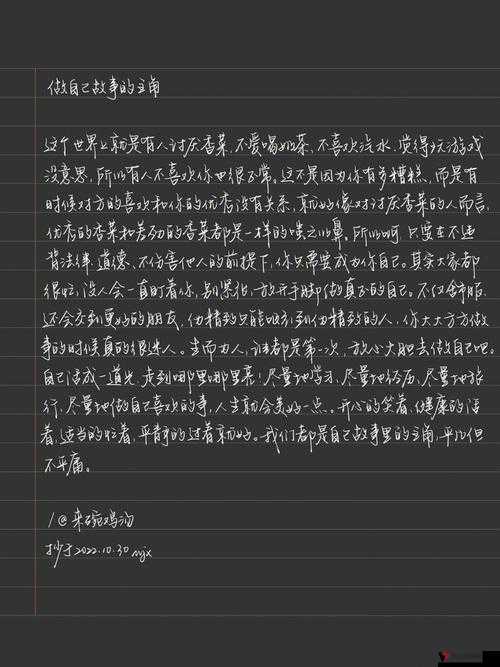 做自己故事的主角
这个世界上就是有人讨厌香菜、不爱喝奶茶、不喜欢汽水、觉得玩游戏
没意思,所以有人不喜欢你也很正常。这不是因为你有多糟糕,而是有
时候对方的喜欢和你的优秀没有关系,就好像对讨厌香菜的人而言,
优秀的香菜和差劲的香菜都是一样的嗤之以鼻。所以啊,只要在不违
背法律、道德、不伤害他人的前提下,你只需要成为你自己。其实大家都
很忙,没人会一直盯着你,别紧张,放开手脚做真正的自己。不仅舒服,
还会交到更好的朋友,伪精致只能吸引到伪精致的人,你大大方方做
事的时候真的很迷人。生而为人,谁都是第一次,放心大胆去做自己吧。
自己活成一道光,走到哪里哪里亮!尽量地学习,尽量地经历,尽量地旅
行,尽量地做自己喜欢的事,人生就会美好一点。开心的笑着,健康的活
着,适当的忙着,平静的过着就好。我们都是自己故事里的主角,平凡但
不平庸。
/@来碗鸡汤
抄于2022.10.30